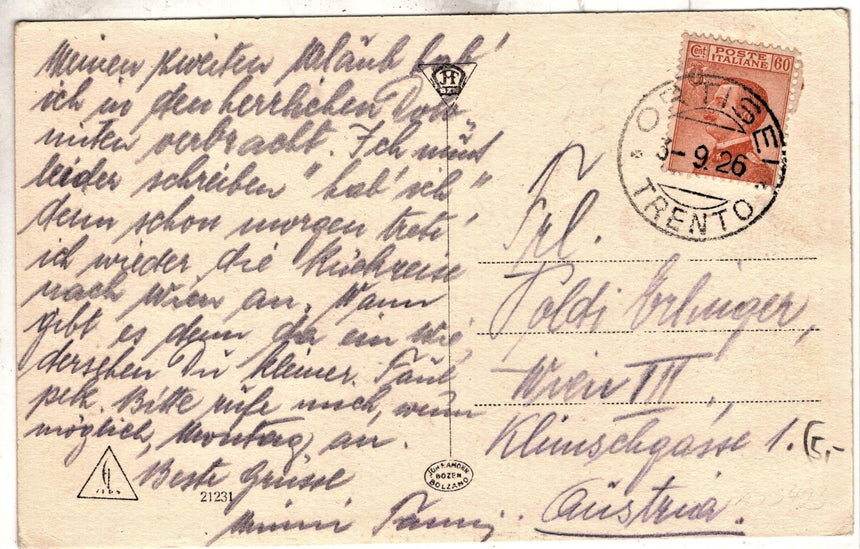 Meinen zweiten Urlaub hab'
ich in den herrlichen Dolo-
miten verbracht. Ich muß
leider schreiben "hab' ich"
denn schon morgen trete
ich wieder die Rückreise
nach Wien an. Wann
gibt es denn da ein Wie-
dersehen Du kleiner Faul-
pelz. Bitte rufe mich, wenn
möglich, Montag an.
Beste Grüsse
21231
CENT POSTE ITALIANE 60
ORTISEI
3-9.26
TRENTO
Frl.
Poldi Erlinger,
Wien III.,
Klimschgasse 1.
5,-
Austria.
JOH. AMONN
BOZEN
BOLZANO